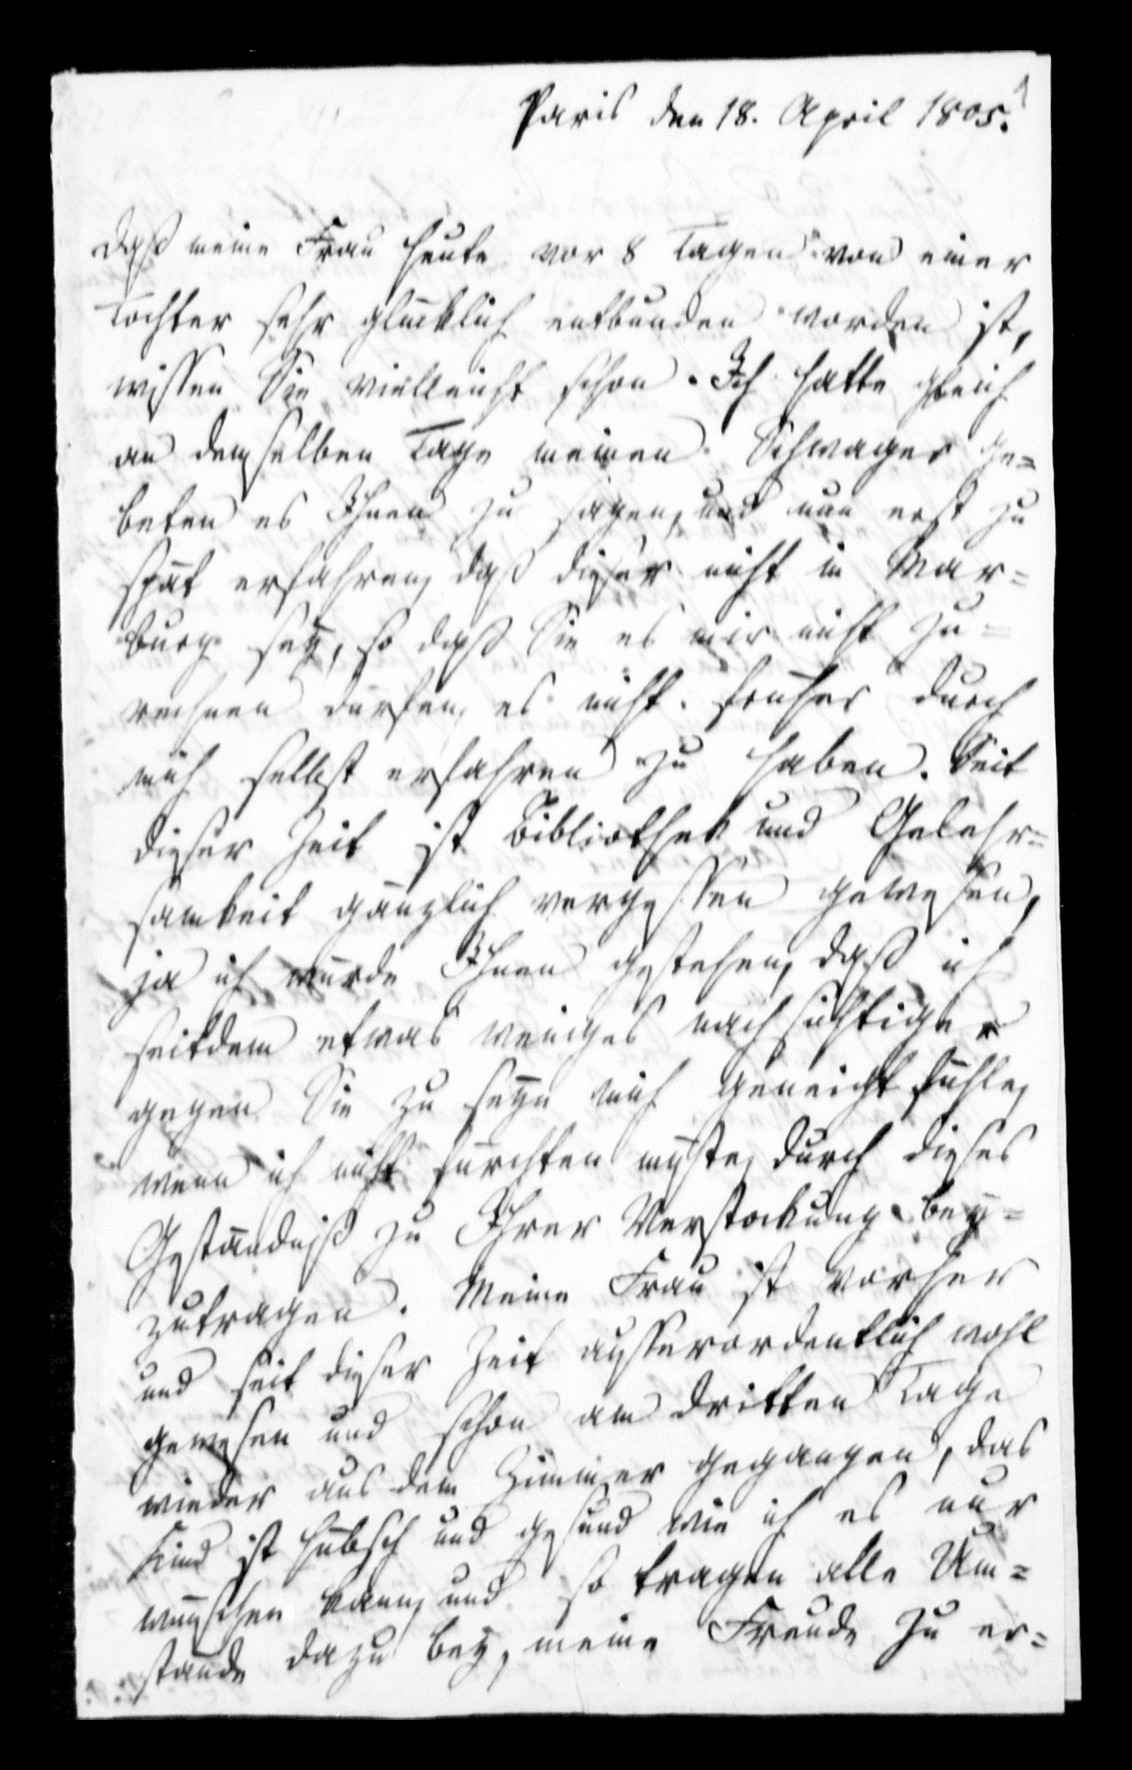 Paris den 18. April 1805.
1
daß meine Frau heute vor 8 Tagen von einer
Tochter sehr glücklich entbunden worden ist,
wissen Sie vielleicht schon. Ich hatte gleich
an demselben Tage meinen Schwager ge=
beten es Ihnen zu sagen, und nun erst zu
spät erfahren, daß dieser nicht in Mar=
burg sey, so daß Sie es mir nicht zu=
rechnen dürfen, es nicht früher durch
mich selbst erfahren zu haben. Seit
dieser Zeit ist Bibliothek und Gelehr=
samkeit gänzlich vergessen gewesen,
ja ich würde Ihnen gestehen, daß ich
seitdem etwas weniges nachsichtiger
gegen Sie zu seyn mich geneigt fühle,
wenn ich nicht fürchten müste, durch dieses
Geständniß zu Ihrer Verstockung bey=
zutragen. Meine Frau ist vorher
und seit dieser Zeit ausserordentlich wohl
gewesen und schon am dritten Tage
wieder aus dem Zimmer gegangen, das
Kind ist hübsch und gesund wie ich es nur
wünschen kann, und so tragen alle Um=
stände dazu bey, meine Freude zu er=